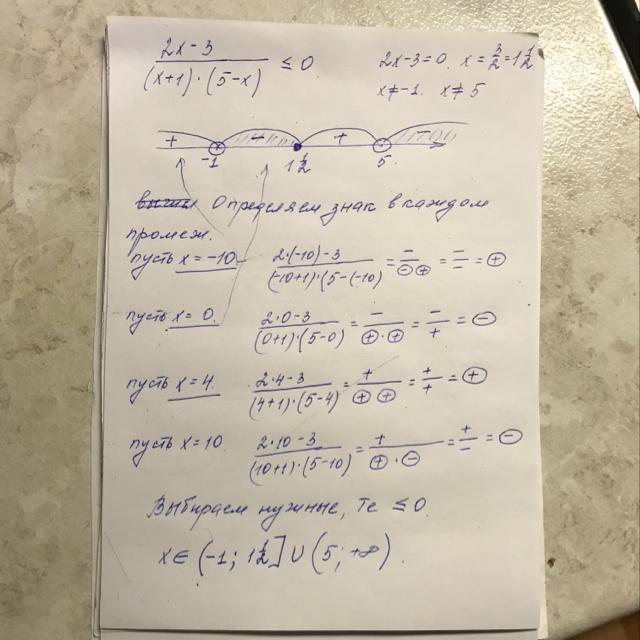 (2x-3)/((x+1)·(5-x)) ≤ 0 2x-3=0. x=3/2=1 1/2
x≠-1. x≠5
+ - + -
-1 1 1/2 5.
Определяем знак в каждом
промеж.
пусть x=-10 (2·(-10)-3)/((-10+1)·(5-(-10)) = -/(⊖⊕) = -/- = ⊕
пусть x=0. (2·0-3)/((0+1)·(5-0) = -/(⊕·⊕) = -/+ = ⊖
пусть x=4. (2·4-3)/((4+1)·(5-4) = +/(⊕⊕) = +/+ = ⊕
пусть x=10 (2·10-3)/((10+1)·(5-10) = +/(⊕·⊖) = +/- = ⊖
Выбираем нужные, те ≤0.
x∈(-1; 1 1/2]∪(5; +∞)